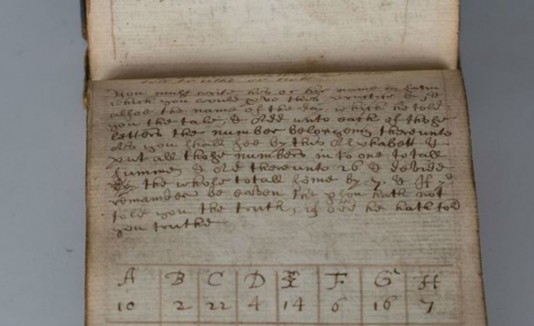 You must write his or her name in Latin
which you would prove this veritie by, &
allsoe the name of the day which he told
you the tale, & Add unto each of those
letters the number belonginge thereunto
as you shall see by this Alphabett &
put all those numbers in to one totall
summe, & Add thereunto 26 & devide
the whole totall sume by 7. & If ye
remainder be eaven the person hath not
told you the truth, if odd he hath told
you truthe
A B C D E F G H
10 2 22 4 14 6 16 7